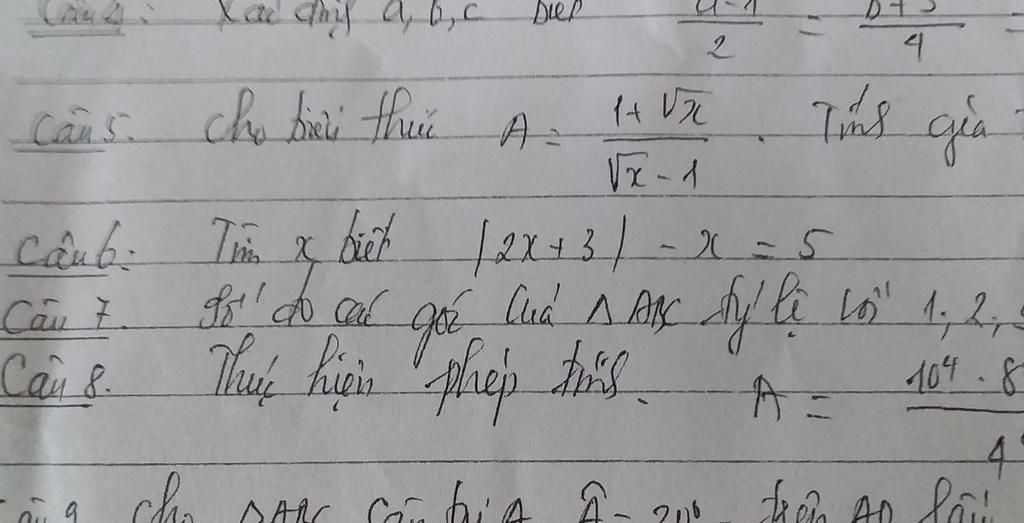 Câu 4: Xác định a, b, c biết a-1/2 = b+3/4 =
Câu 5. Cho biểu thức A = 1+√x/√x-1 . Tính giá
Câu 6: Tìm x biết |2x+3| - x = 5
Câu 7. Số đo các góc của Δ ABC tỷ lệ với 1; 2;
Câu 8. Thực hiện phép tính. A = 10⁴ . 8 / 4
Câu 9 Cho Δ ABC cân tại A Â = 20° trên AB lấy